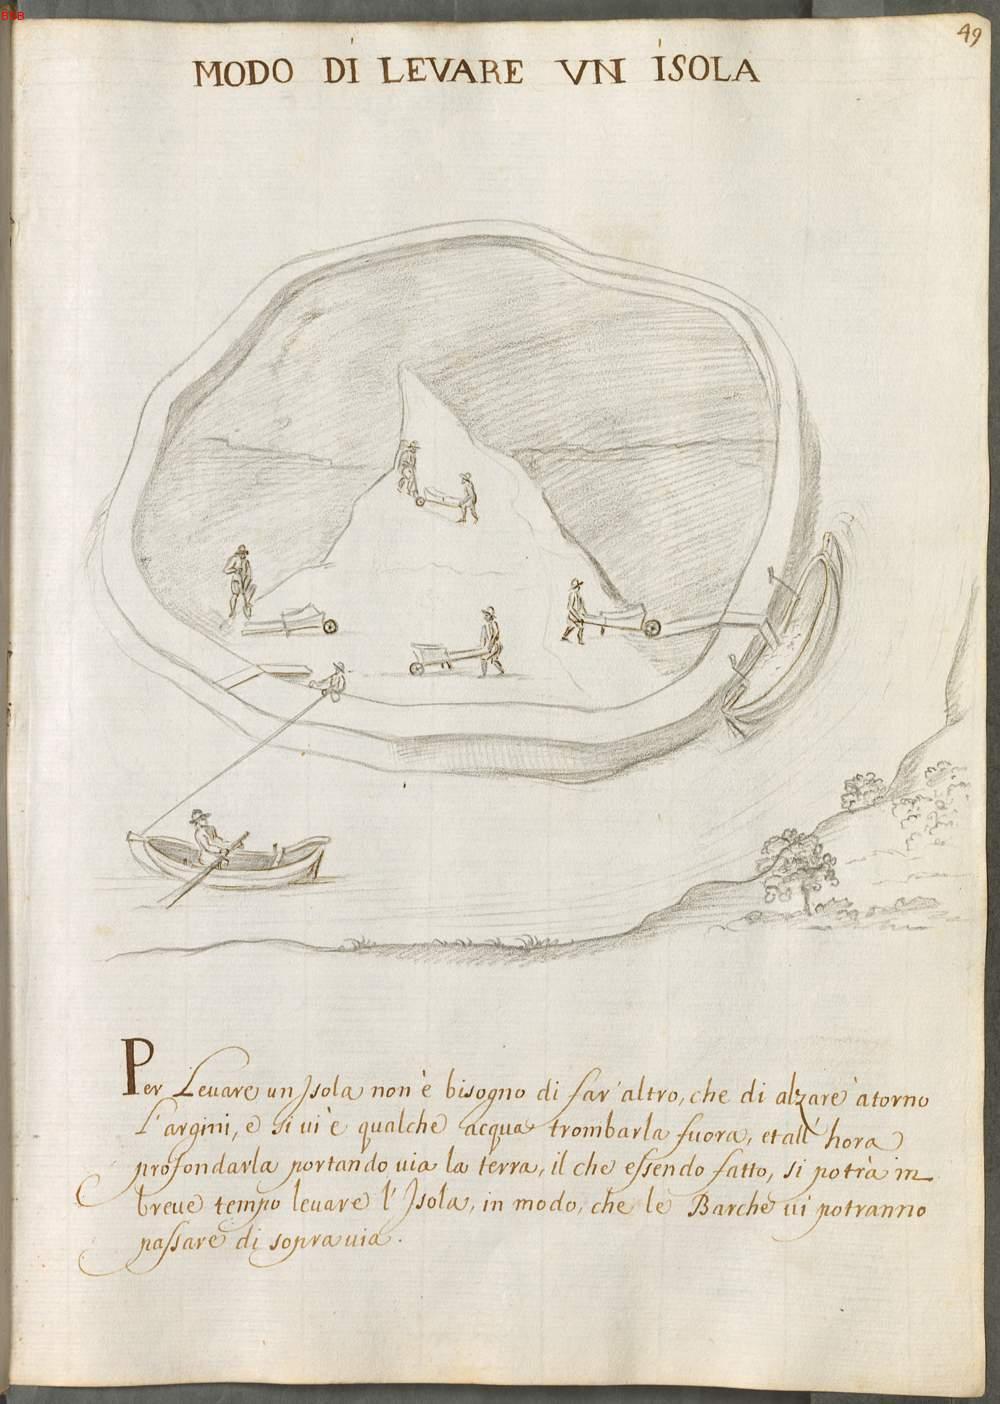 BSB
49
MODO DI LEVARE VN ISOLA
Per Leuare un Isola non è bisogno di far' altro, che di alzare àtorno
l'argini, e si ui è qualche acqua trombarla fuora, et all' hora
profondarla portando uia la terra, il che essendo fatto, si potrà in
breue tempo leuare l'Isola, in modo, che le Barche ui potranno
passare di soprauia.